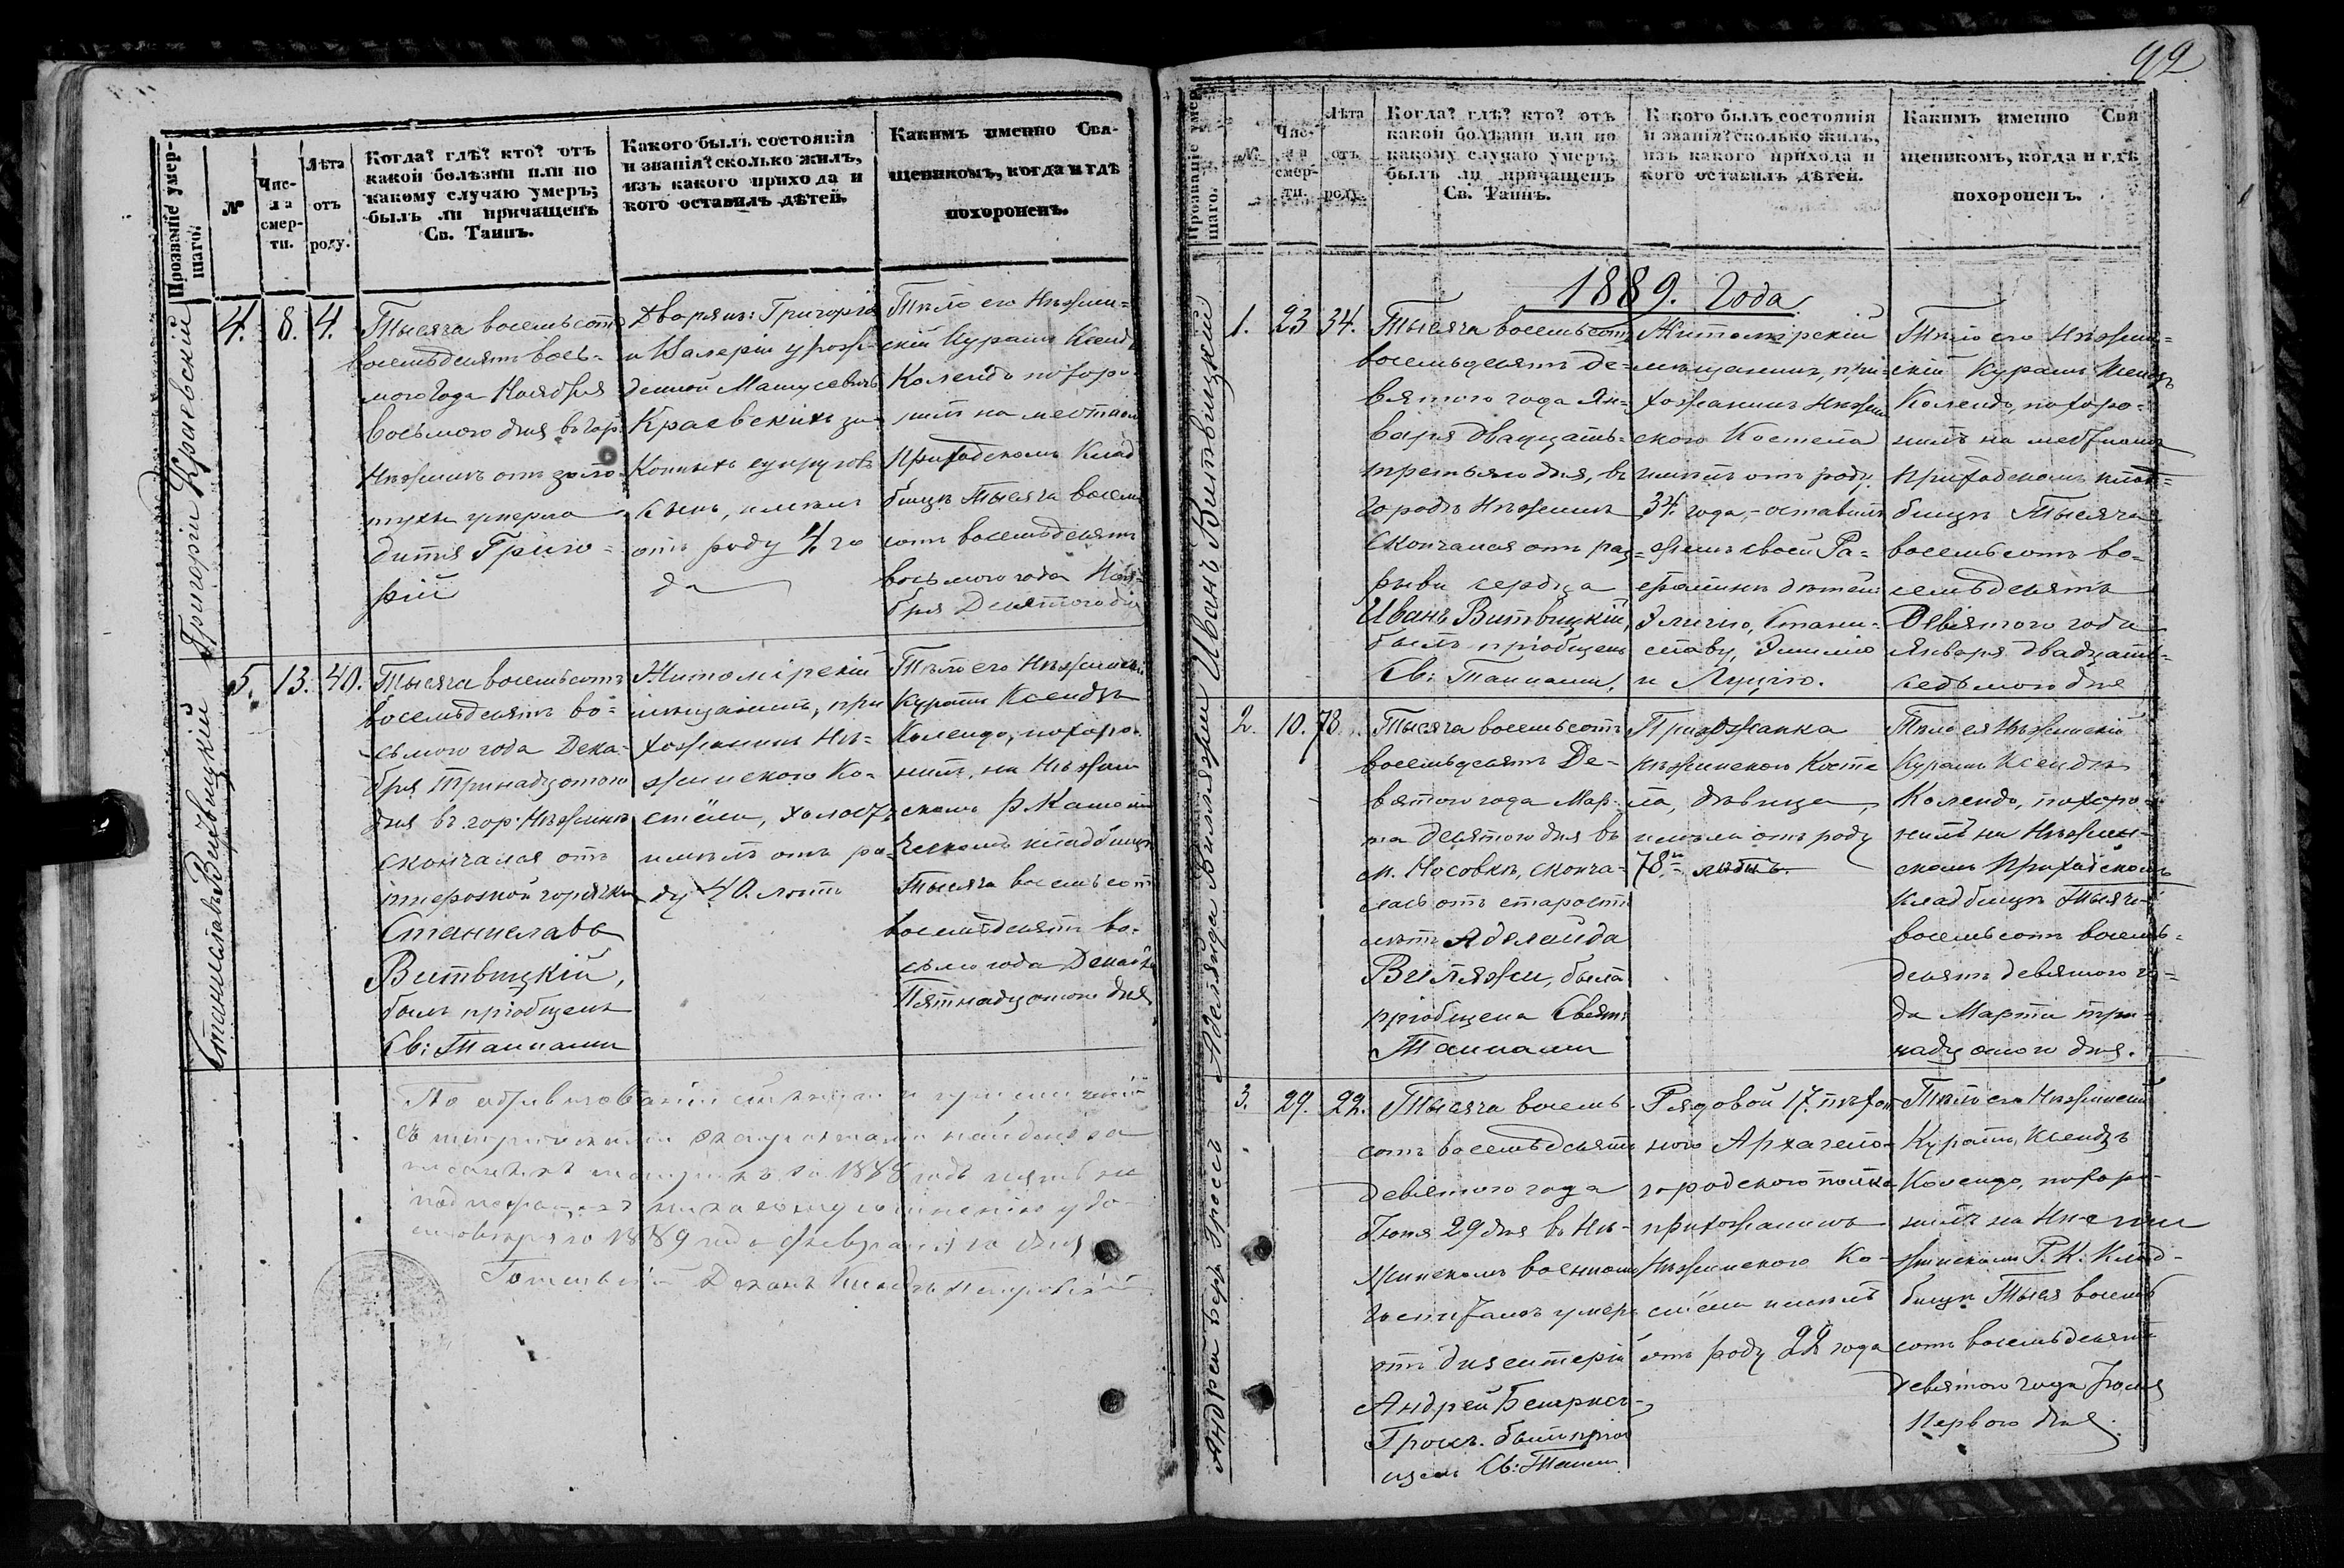 Прозваніе умер-
шаго.
№
Чис-
ла
смер-
ти.
Лѣта
отъ
роду.
Когда? гдѣ? кто? отъ
какой болѣзни или по
какому случаю умеръ;
былъ ли причащенъ
Св. Таинъ.
Какого былъ состоянія
и званія? сколько жилъ,
изъ какого прихода и
кого оставилъ дѣтей.
Какимъ именно Свя-
щенникомъ, когда и гдѣ
похороненъ.
Григорій Краевскій
4.
8.
4.
Тысяча восемьсотъ
восемьдесятъ вось-
мого года Ноября
восьмого дня въ гор.
Нѣжинѣ отъ золо-
тухи умерло
дитя Григо-
рій
Дворянъ: Григорія
и Валеріи урож-
денной Матусевичъ
Краевскихъ за-
конныхъ супруговъ
сынъ, имѣлъ
отъ роду 4. го
да
Тѣло его Нѣжин-
скій Куратъ Ксендзъ
Колендо похоро-
нилъ на местномъ
Приходскомъ Клад
бищѣ Тысяча восемь
сотъ восемьдесятъ
восьмого года Ноя-
бря Девятого дня
Станиславъ Витвицкій
5.
13.
40.
Тысяча восемьсотъ
восемьдесятъ во-
сьмого года Дека-
бря Тринадцатого
дня въ гор. Нѣжинѣ
скончался отъ
тифозной горячки
Станиславъ
Витвицкій,
былъ пріобщенъ
Св: Тайнами
Житомірскій
мещанинъ, при
хожанинъ Нѣ-
жинского Ко-
стёла, холостъ
имѣлъ отъ ро-
ду 40. лѣтъ
Тѣло его Нѣжинскій
Куратъ Ксендзъ
Колендо, похоро-
нилъ, на Нѣжин
скомъ Р. Католи
ческомъ кладбищѣ
Тысяча восемьсотъ
восемьдесятъ во-
сьмого года Декабря
Пятнадцатого дня
1888
1889
Деканъ Ксендзъ
92
Прозваніе умер-
шаго.
№
Чис-
ла
смер-
ти.
Лѣта
отъ
роду.
Когда? гдѣ? кто? отъ
какой болѣзни или по
какому случаю умеръ;
былъ ли причащенъ
Св. Таинъ.
Какого былъ состоянія
и званія? сколько жилъ,
изъ какого прихода и
кого оставилъ дѣтей.
Какимъ именно Свя
щенникомъ, когда и гдѣ
похороненъ.
1889. Года
Иванъ Витвицкій
1.
23
34.
Тысяча восемьсотъ
восемьдесятъ де-
вятого года Ян-
варя двадцать-
третьяго дня, въ
городѣ Нѣжинѣ
скончался отъ раз-
рыва сердца
Иванъ Витвицкій,
былъ пріобщенъ
Св: Тайнами.
Житомірскій
мещанинъ, при-
хожанинъ Нѣжин
ского Костела
имѣлъ отъ роду
34. года, - оставилъ
дѣтей
Стани-
славу, Эмилію
и Луцію.
Тѣло его Нѣжин-
скій Куратъ Ксендзъ
Колендо, похоро-
нилъ на местномъ
приходскомъ клад-
бищѣ Тысяча
восемьсотъ во-
семьдесятъ
Девятого года
Января двадцать-
седьмого дня
Аделяида Виляжи
2.
10.
78.
Тысяча восемьсотъ
восемьдесятъ Де-
вятого года Мар-
та десятого дня въ
м. Носовкѣ, сконча-
лась отъ старости
лѣтъ Аделаида
Виляжи, была
пріобщена Святы
Тайнами
Прихожанка
нѣжинского Косте
ла, дѣвица,
имѣла отъ роду
78 лѣтъ
Тѣло ея Нѣжинскій
Куратъ Ксендзъ
Колендо, похоро-
нилъ на Нѣжин-
скомъ Приходскомъ
кладбищѣ Тысяча
восемьсотъ восемь-
десятъ девятого го-
да Марта три-
надцатого дня.
Андрей
3.
29.
22.
Тысяча восемь
сотъ восемьдесятъ
девятого года
29 дня въ Нѣ-
жинскомъ военномъ
госпиталѣ умеръ
отъ дизентеріи
Андрей
былъ пріоб
щенъ Св: Тайнъ
Рядовой 17. пѣхот
ного Архангело-
городского полка
прихожанинъ
Нѣжинского Ко-
стёла имѣлъ
отъ роду 22 года
Тѣло его Нѣжинскій
Куратъ, Ксендзъ
Колендо, похоро-
нилъ на
жинскомъ Р. К. Клад-
бищѣ Тыся восемь
сотъ восемьдесятъ
девятого года
Первого дня.